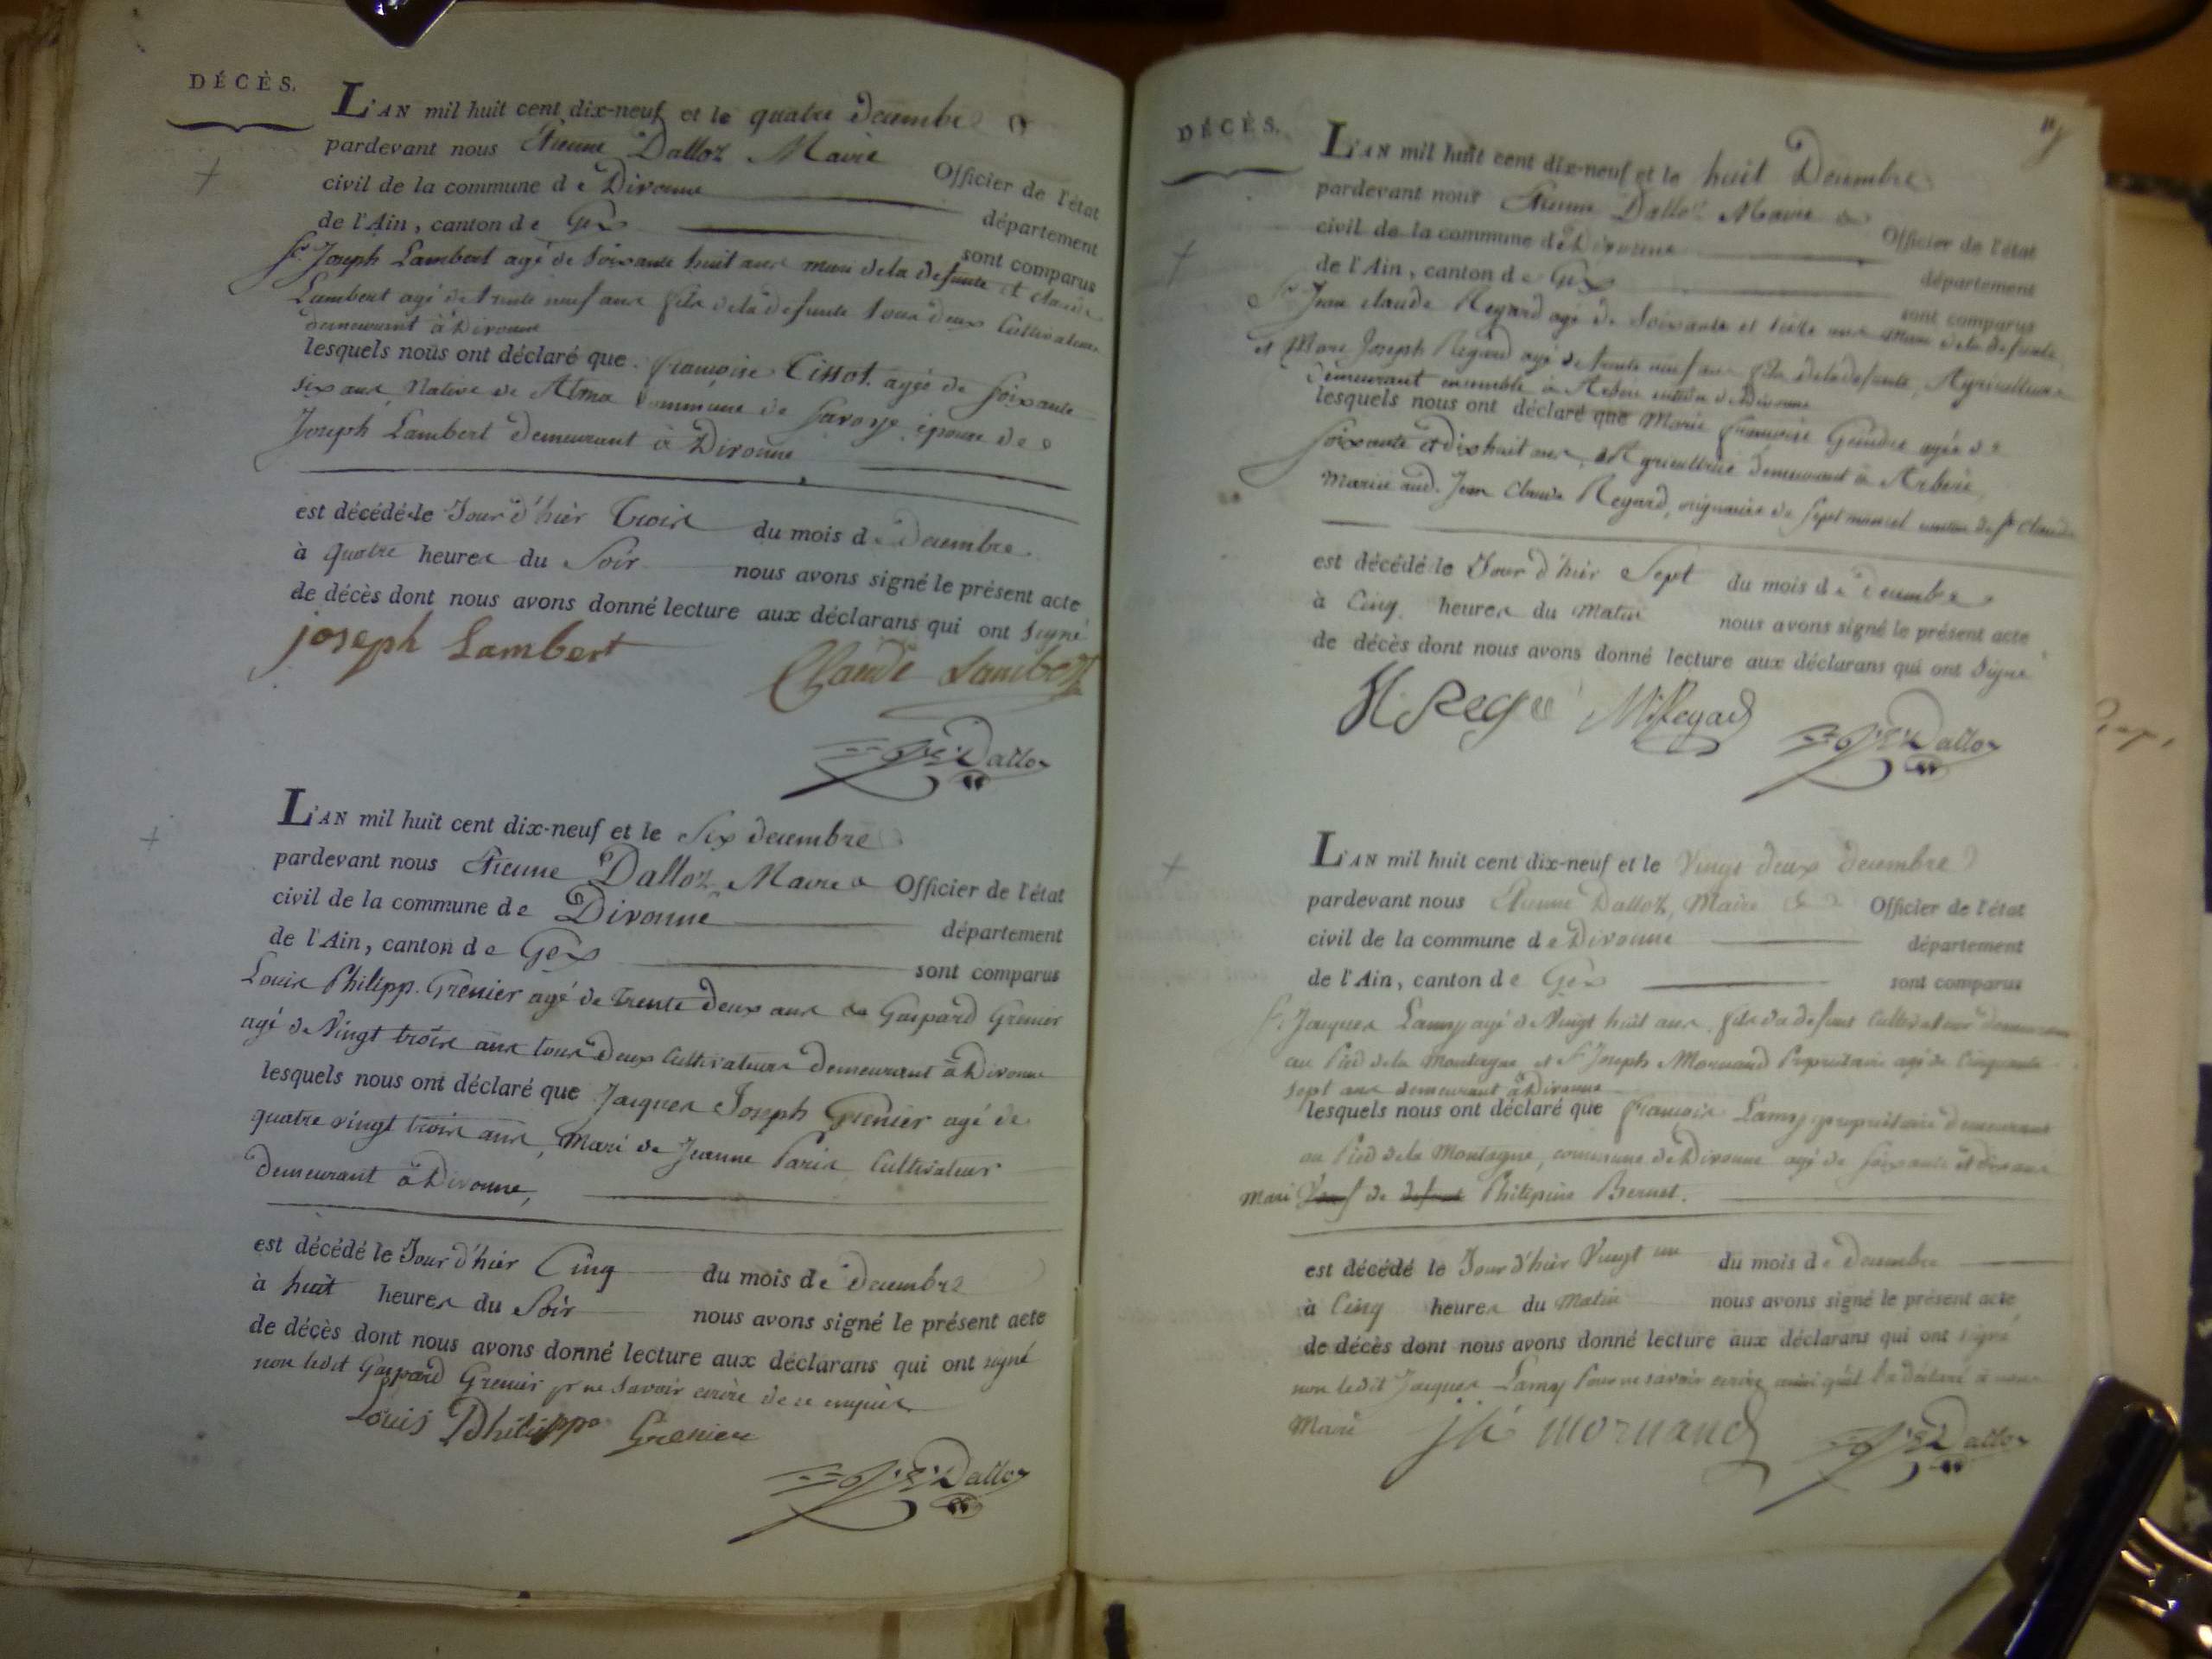 DÉCÈS.
L'AN mil huit cent dix-neuf et le quatre Decembre
pardevant nous Etienne Dalloz Maire Officier de l'état
civil de la commune de Divonne département
de l'Ain, canton de Gex sont comparus
Sr. Joseph Lambert agé de Soixante huit ans mari de la defunte et claude
Lambert agé de trente neuf ans fils de la defunte tous deux Cultivateurs
demeurant à Divonne
lesquels nous ont déclaré que françoise Tissot agée de Soixante
six ans, Native de commune de Savoye, épouse de
Joseph Lambert demeurant à Divonne
est décédé le Jour d'hier Trois du mois de Decembre
à quatre heures du Soir nous avons signé le présent acte
de décès dont nous avons donné lecture aux déclarans qui ont Signé
joseph Lambert Claude Lambert
Dalloz
L'AN mil huit cent dix-neuf et le Six decembre
pardevant nous Etienne Dalloz Maire Officier de l'état
civil de la commune de Divonne département
de l'Ain, canton de Gex sont comparus
Louis Philipp. Grenier agé de Trente deux ans & Gaspard Grenier
agé de Vingt trois ans tous deux Cultivateurs demeurant à Divonne
lesquels nous ont déclaré que Jacques Joseph Grenier agé de
quatre vingt trois ans, Mari de Jeanne Paris Cultivateur
demeurant à Divonne,
est décédé le Jour d'hier Cinq du mois de decembre
à huit heures du Soir nous avons signé le présent acte
de décès dont nous avons donné lecture aux déclarans qui ont signé
non ledit Gaspard Grenier pr ne Savoir ecrire de ce enquis
Louis Philippe Grenier
Dalloz
DÉCÈS.
L'AN mil huit cent dix-neuf et le huit Decembre
pardevant nous Etienne Dalloz Maire Officier de l'état
civil de la commune de Divonne département
de l'Ain, canton de Gex sont comparus
Sr. Jean claude Regard agé de Soixante et ans Mari de la defunte
et Marc Joseph Regard agé de trente neuf ans fils de la defunte, Agriculteurs
demeurant ensemble à Arbere de Divonne
lesquels nous ont déclaré que Marie françoise Goindre agée de
Soixante et dix huit ans, Agricultrice demeurant à Arbere,
Mariée aud. Jean Claude Regard, originaire de Septmoncel canton de St Claude
est décédé le Jour d'hier Sept du mois de Decembre
à Cinq heures du Matin nous avons signé le présent acte
de décès dont nous avons donné lecture aux déclarans qui ont Signé
Regard
Dalloz
L'AN mil huit cent dix-neuf et le Vingt deux decembre
pardevant nous Etienne Dalloz, Maire Officier de l'état
civil de la commune de Divonne département
de l'Ain, canton de Gex sont comparus
Sr. Jacques Lamy agé de Vingt huit ans, fils du defunt Cultivateur demeurant
au Pied de la Montagne et Sr Joseph Mornand Propriétaire agé de Cinquante
Sept ans demeurant à Divonne
lesquels nous ont déclaré que françois Lamy propriétaire demeurant
au Pied de la Montagne, commune de Divonne agé de Soixante et dix ans
Mari Veuf de defunt Philipine Bernet.
est décédé le Jour d'hier Vingt un du mois de Decembre
à Cinq heures du Matin nous avons signé le présent acte
de décès dont nous avons donné lecture aux déclarans qui ont signé
non ledit Jacques Lamy Pour ne savoir ecrire ainsi qu'il l'a déclaré à nous
Maire jh mornand
Dalloz